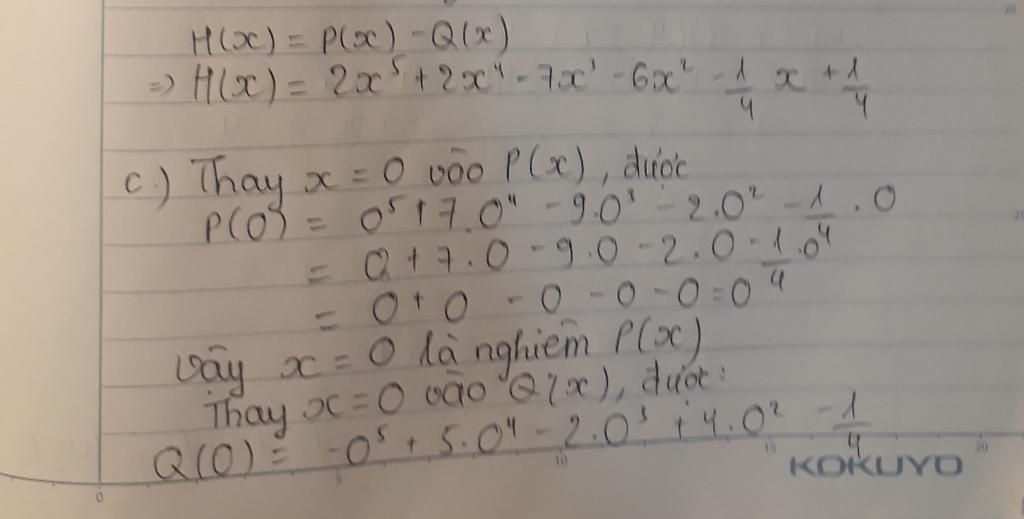 H(x) = P(x) - Q(x)
=> H(x) = 2x⁵ + 2x⁴ - 7x³ - 6x² - 1/4 x + 1/4
c.) Thay x = 0 vào P(x), được
P(0) = 0⁵ + 7.0⁴ - 9.0³ - 2.0² - 1/4 . 0
= 0 + 7.0 - 9.0 - 2.0 - 1/4 . 0
= 0 + 0 - 0 - 0 - 0 = 0
Vậy x = 0 là nghiệm P(x)
Thay x = 0 vào Q(x), được:
Q(0) = -0⁵ + 5.0⁴ - 2.0³ + 4.0² - 1/4
KOKUYO